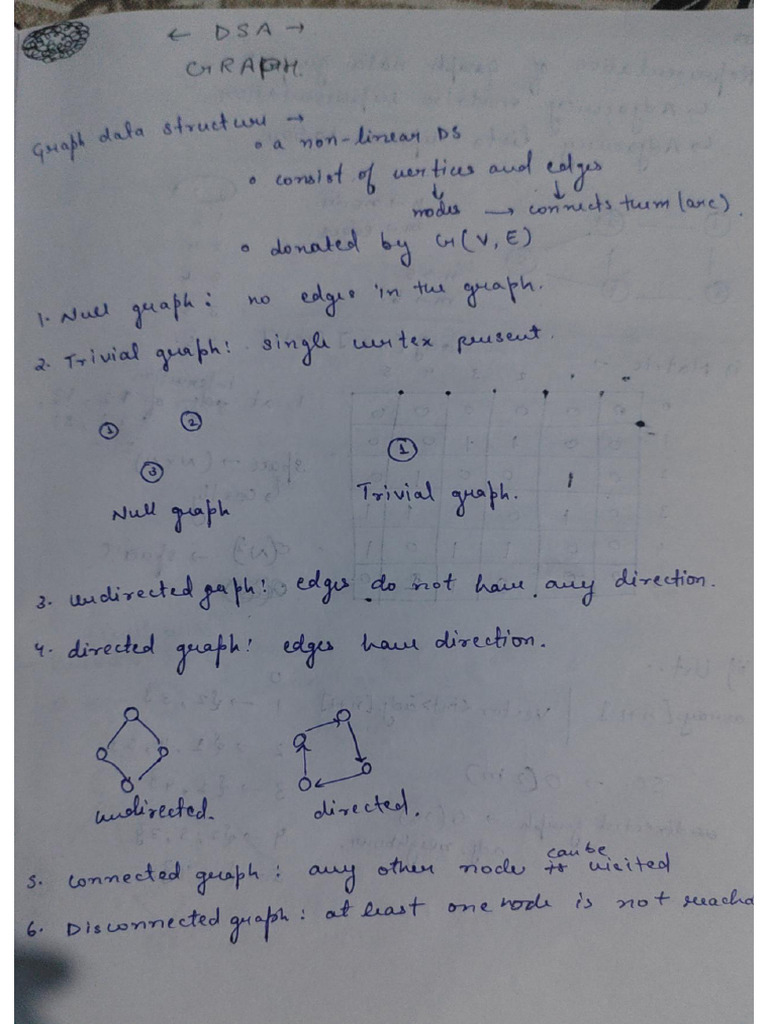 ← DSA →
GRAPH.
Graph data structure →
• a non-linear DS
• consist of vertices and edges
↓ ↓
nodes → connects them (arc).
• donated by G(V, E)
1. Null graph: no edges in the graph.
2. Trivial graph: single vertex present.
① ②
③
①
Null graph
Trivial graph.
3. undirected graph: edges do not have any direction.
4. directed graph: edges have direction.
undirected. directed.
can be
5. connected graph: any other node visited
6. Disconnected graph: at least one node is not reacha